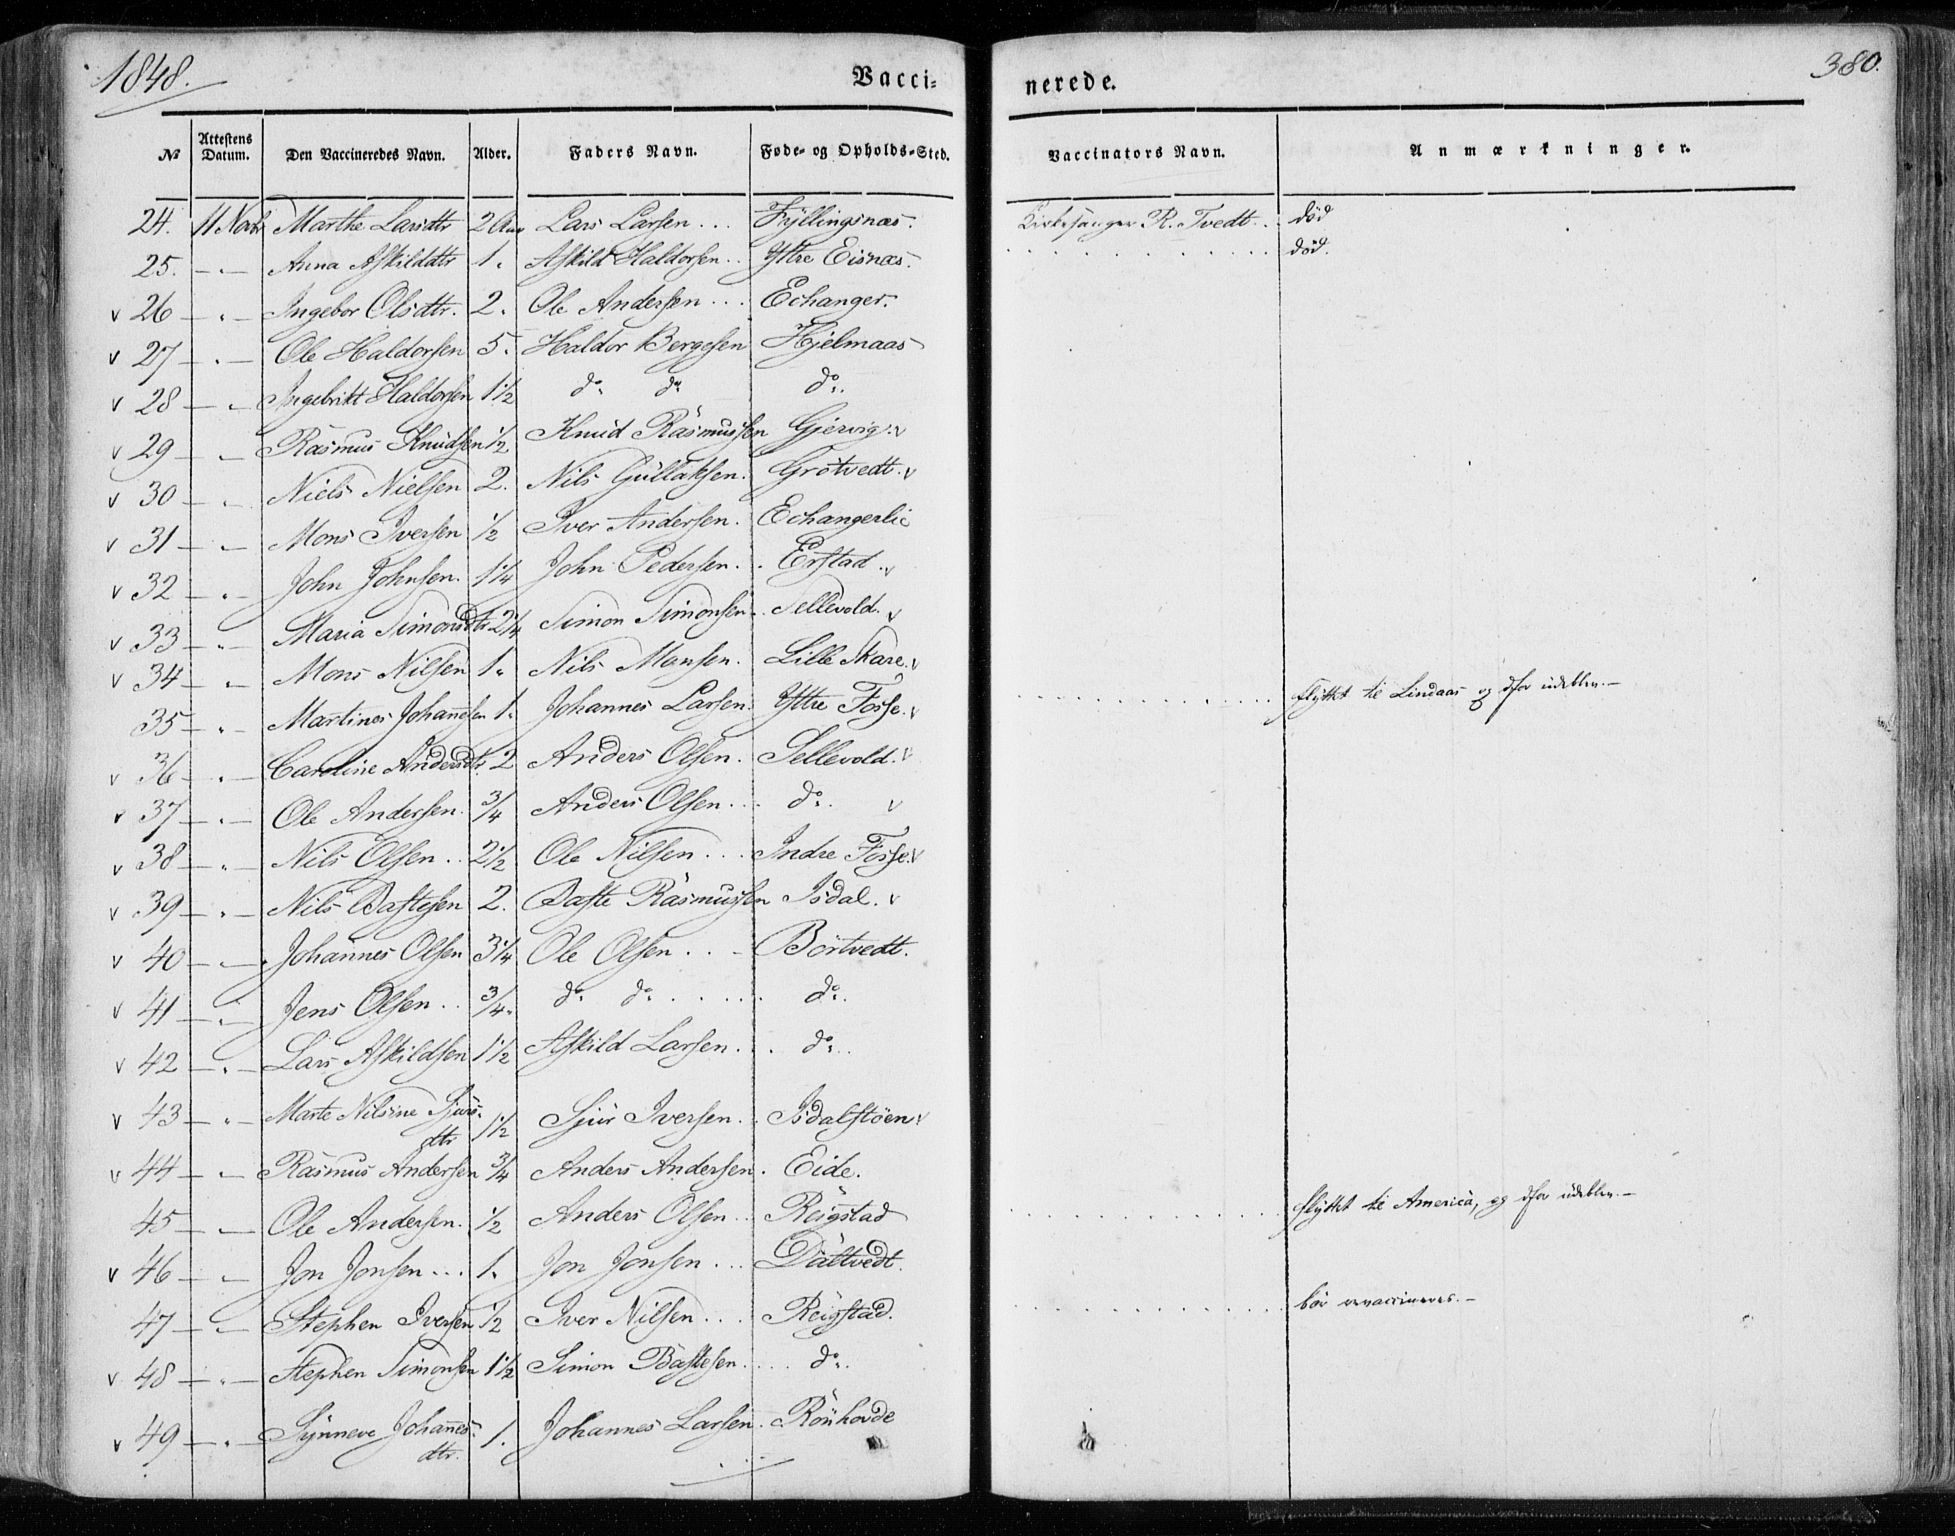 1848.
Vacci-
nerede.
380.
№ Attestens Datum. Den Vaccineredes Navn. Alder. Faders Navn. Føde- og Opholds-Sted. Vaccinators Navn. Anmærkninger.
24. 11 Novbr Marthe Larsdtr 2 Aar Lars Larsen... Fyllingsnæs. Kirkesanger R. Tvedt.. død
25. — " — Anna Askilddtr 1. Askild Haldorsen.. Ýttre Eisnæs. død.
v 26 — " — Ingebor Olsdtr. 2. Ole Andersen... Echanger.
v 27 — " — Ole Haldorsen 5. Haldor Bergesen Hjelmaas
v 28 — " — Ingebrikt Haldorsen 1½ do. do. do.
v 29 — " — Rasmus Knudsen ½ Knud Rasmussen Gjervig. v
v 30 — " — Niels Nielsen 2. Nils Gullaksen. Grötvedt. v
v 31 — " — Mons Iversen ½ Iver Andersen. Echangerlie
v 32 — " — John Johnsen. 1¼ John Pedersen. . Erstad. v
v 33 — " — Maria Simonsdtr 2¼ Simon Simonsen.. Sellevold. v
v 34 — " — Mons Nilsen 1. Nils Monsen. Lille Skare. v
35 — " — Martines Johannesen 1. Johannes Larsen. Ýttre Fosse. v flyttet til Lindaas og dfor udeblev.—
v 36 — " — Caroline Andersdtr. 2 Anders Olsen. Sellevold. v
v 37 — " — Ole Andersen. ¾ Anders Olsen... do. v
v 38 — " — Nils Olsen.. 2½ Ole Nilsen... Indre Fosse. v
v 39 — " — Nils Bastesen 2. Baste Rasmussen Isdal. v
v 40 — " — Johannes Olsen 3¼ Ole Olsen... Börtvedt.
v 41 — " — Jens Olsen.. ¾. do. do..... do.
v 42 — " — Lars Askildsen 1½ Askild Larsen... do..
v 43 — " — Marte Nilsine Sjurs-
dtr 1½ Sjur Iversen.. Isdalstöen. v
v 44 — " — Rasmus Andersen ¾ Anders Andersen. Eide.
45 — " — Ole Andersen. ½ Anders Olsen.. Reigstad flyttet til America, og dfor udeblev.—
v 46 — " — Jon Jonsen... 1. Jon Jonsen... Daltvedt.
47 — " — Stephen Iversen ½ Iver Nilsen... Reigstad. bör revaccineres.—
v 48 — " — Stephen Simonsen 1½ Simon Bastesen.... do.
v 49 — " — Synneve Johannes-
dtr. 1. Johannes Larsen. Rönhovde